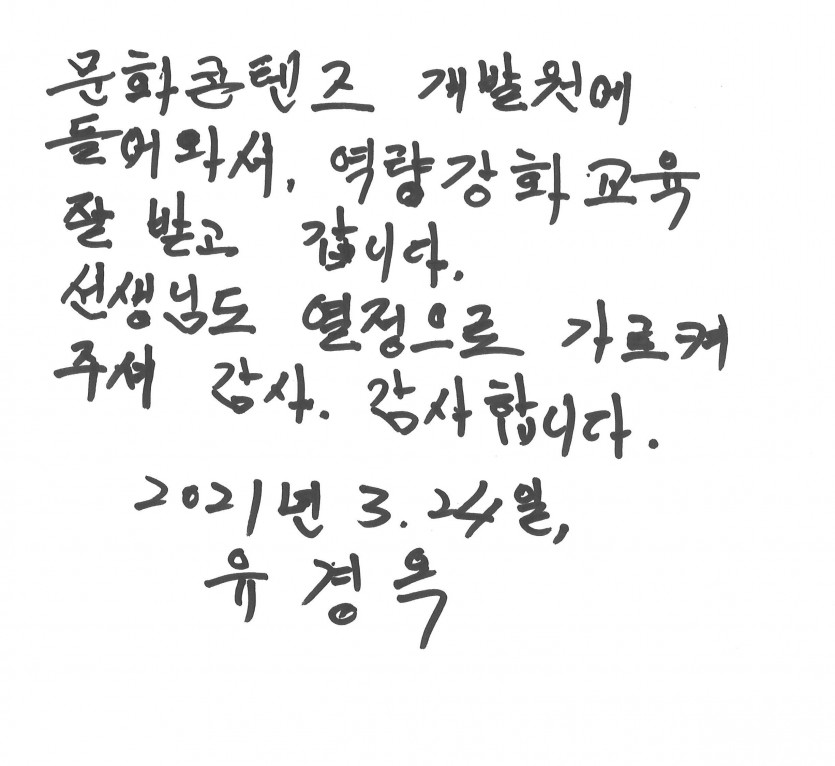 문화콘텐즈 개발원에
들어와서, 역량강화교육
잘 받고 갑니다.
선생님도 열정으로 가르켜
주셔 감사. 감사합니다.
2021년 3. 24일,
유경옥